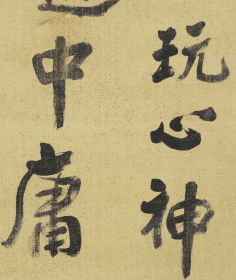 玩心神
中庸